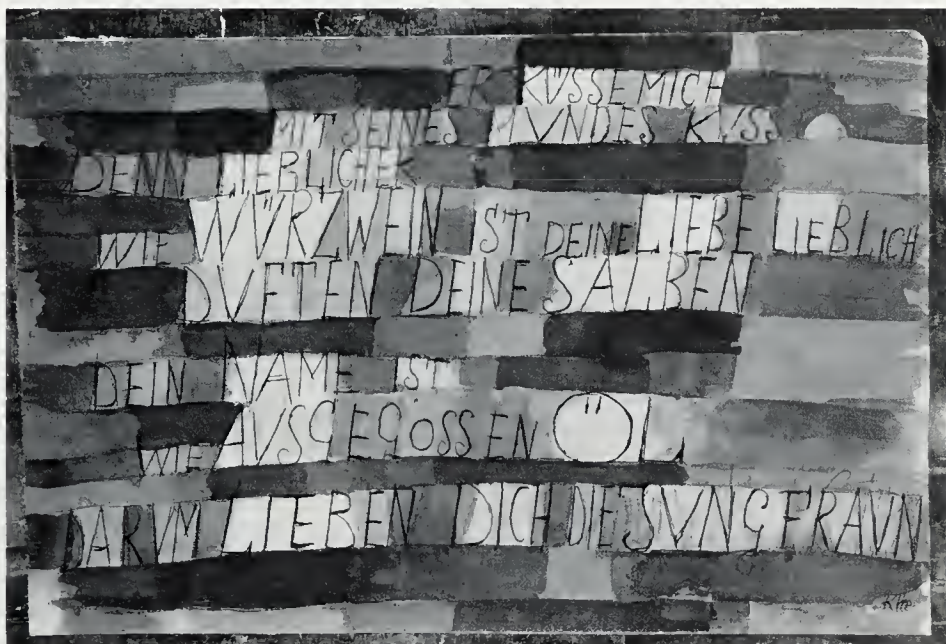 ER KÜSSE MICH
MIT SEINES MUNDES KUSS
DENN LIEBLICHER
WIE WÜRZWEIN IST DEINE LIEBE LIEBLICH
DUFTEN DEINE SALBEN
DEIN NAME IST
WIE AUSGEGOSSEN ÖL
DARUM LIEBEN DICH DIE JUNGFRAUN
Klee